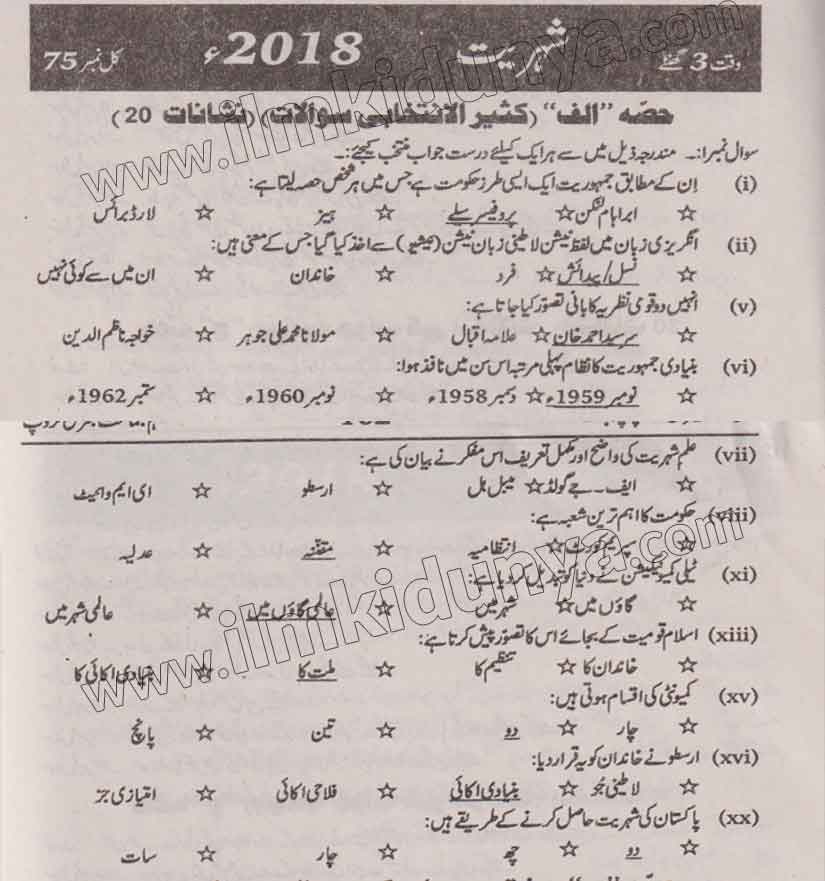 وقت 3 گھنٹے شہریت 2018ء کل نمبر 75
حصہ "الف" (کثیر الانتخابی سوالات) (نشانات 20)
سوال نمبر1:۔ مندرجہ ذیل میں سے ہر ایک کیلئے درست جواب منتخب کیجئے:۔
(i) اِن کے مطابق جمہوریت ایک ایسی طرز حکومت ہے جس میں ہر شخص حصہ لیتا ہے:
☆ ابراہام لنکن ☆ پروفیسر سیلے ☆ ہیز ☆ لارڈ برائس
(ii) انگریزی زبان میں لفظ نیشن لاطینی زبان نیشن (نیشیو) سے اخذ کیا گیا جس کے معنی ہیں:
☆ نسل/پیدائش ☆ فرد ☆ خاندان ☆ ان میں سے کوئی نہیں
(v) انہیں دو قومی نظریہ کا بانی تصوّر کیا جاتا ہے:
☆ سر سید احمد خان ☆ علامہ اقبال ☆ مولانا محمد علی جوہر ☆ خواجہ ناظم الدین
(vi) بنیادی جمہوریت کا نظام پہلی مرتبہ اس سن میں نافذ ہوا:
☆ نومبر 1959ء ☆ دسمبر 1958ء ☆ نومبر 1960ء ☆ ستمبر 1962ء
(vii) علمِ شہریت کی واضح اور مکمل تعریف اس مفکر نے بیان کی ہے:
☆ ایف۔جے گولڈ ☆ میبل ہل ☆ ارسطو ☆ ای ایم وہائیٹ
(viii) حکومت کا اہم ترین شعبہ ہے:
☆ سپریم کورٹ ☆ انتظامیہ ☆ مقننہ ☆ عدلیہ
(xi) ٹیلی کمیونیکیشن نے دنیا کو تبدیل کر دیا ہے:
☆ گاؤں میں ☆ شہر میں ☆ عالمی گاؤں میں ☆ عالمی شہر میں
(xiii) اسلام قومیت کے بجائے اس کا تصوّر پیش کرتا ہے:
☆ خاندان کا ☆ تنظیم کا ☆ ملت کا ☆ بنیادی اکائی کا
(xv) کمیونٹی کی اقسام ہوتی ہیں:
☆ چار ☆ دو ☆ تین ☆ پانچ
(xvi) ارسطو نے خاندان کو یہ قرار دیا:
☆ لاطینی جُو ☆ بنیادی اکائی ☆ فلاحی اکائی ☆ امتیازی جز
(xx) پاکستان کی شہریت حاصل کرنے کے طریقے ہیں:
☆ دو ☆ چھ ☆ چار ☆ سات
www.ilmkidunya.com
www.ilmkidunya.com